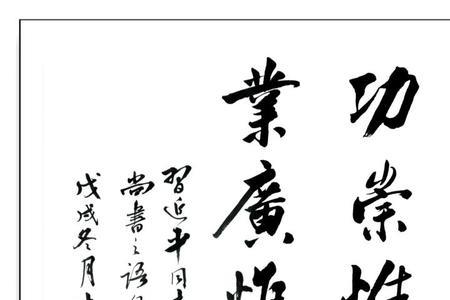 功崇惟
業廣惟
習近平同
尚書之語
戊戌冬月